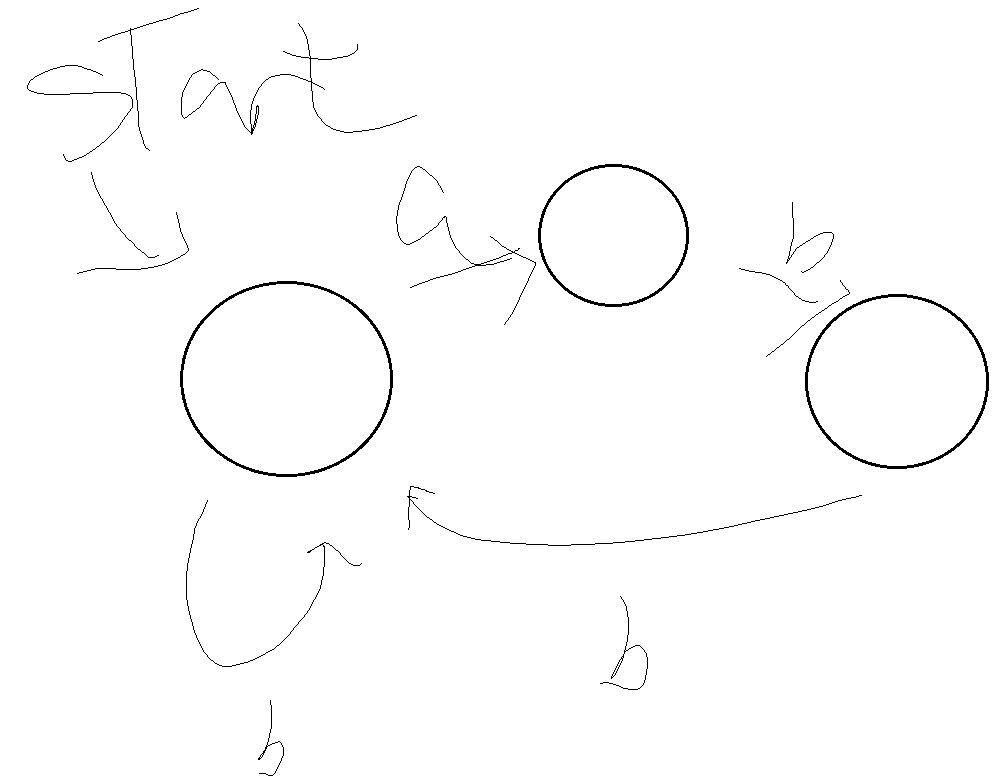 START
a
b
b
b